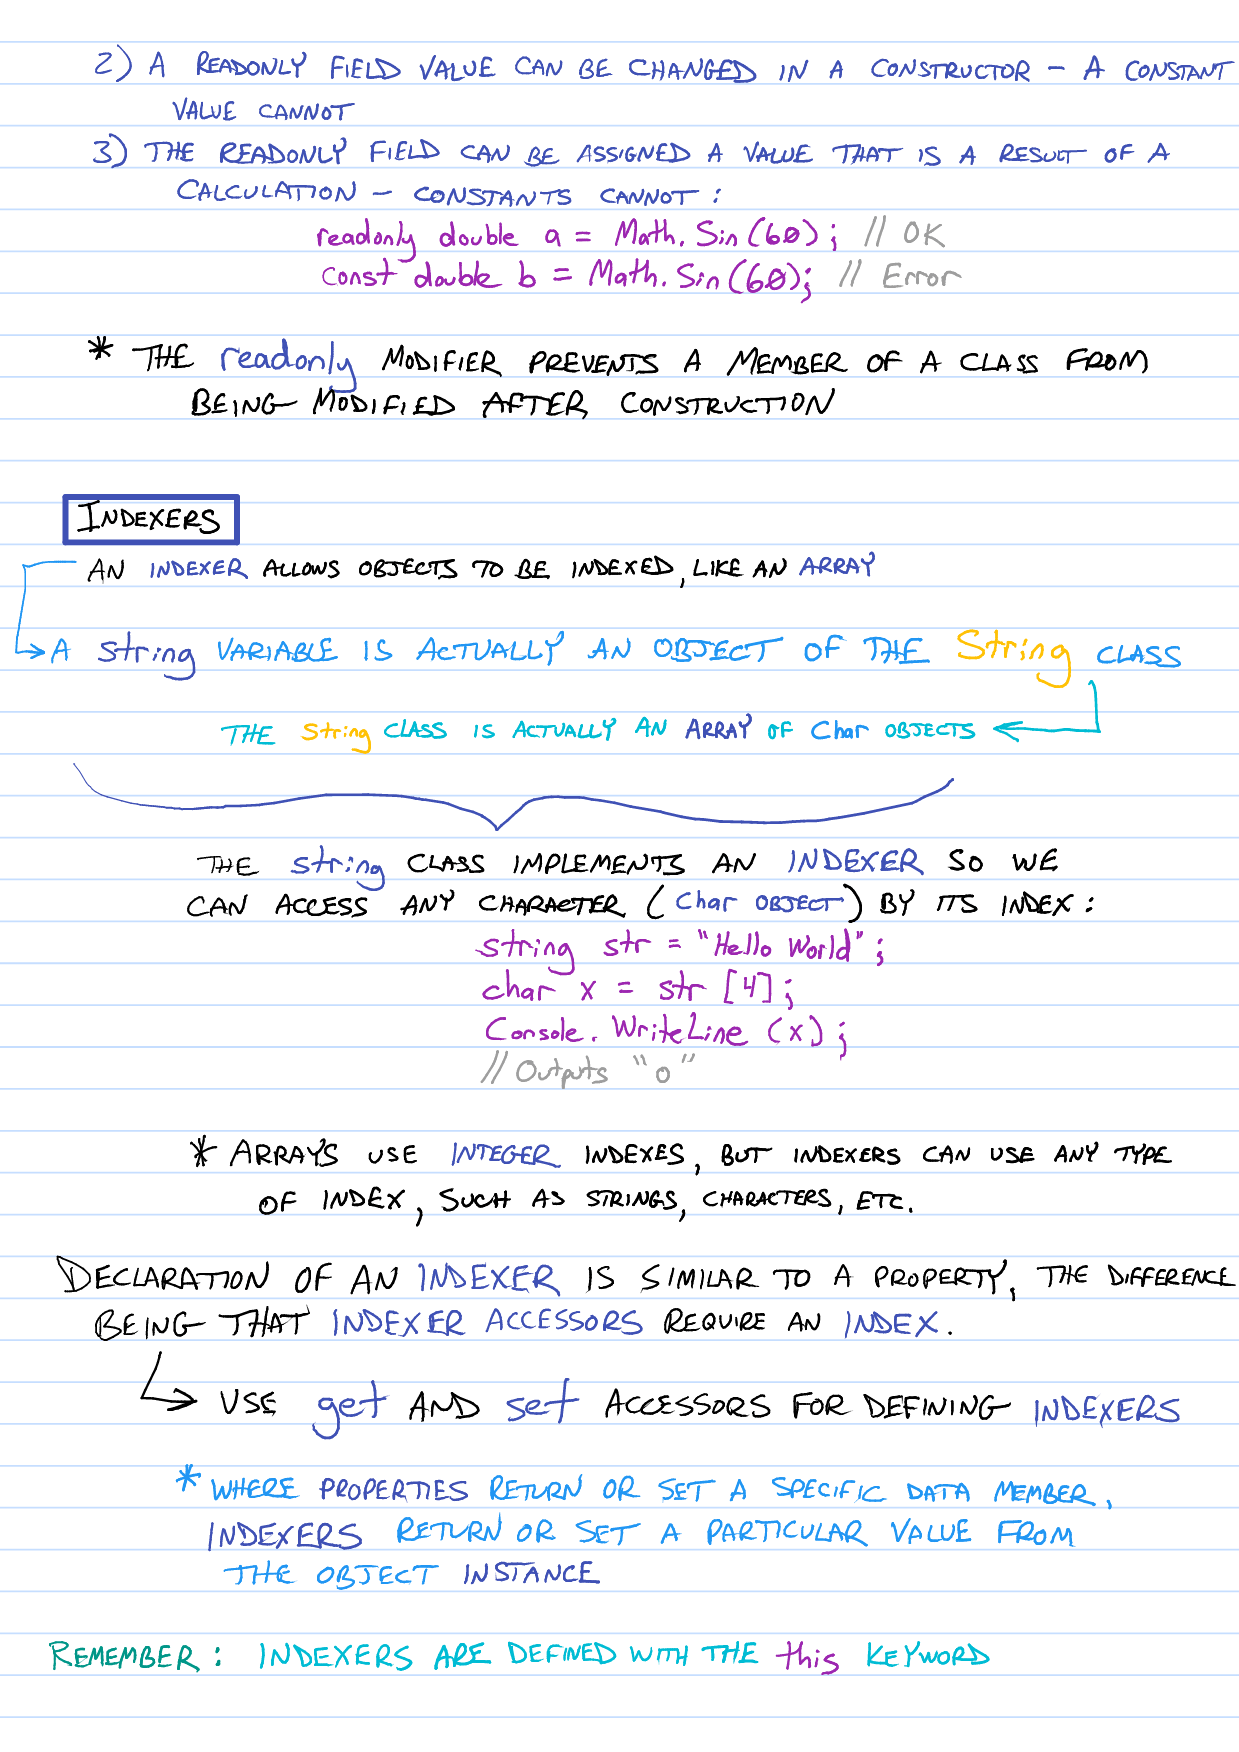 2) A READONLY FIELD VALUE CAN BE CHANGED IN A CONSTRUCTOR – A CONSTANT
VALUE CANNOT
3) THE READONLY FIELD CAN BE ASSIGNED A VALUE THAT IS A RESULT OF A
CALCULATION – CONSTANTS CANNOT:
readonly double a = Math.Sin(60); // OK
const double b = Math.Sin(60); // Error
* THE readonly MODIFIER PREVENTS A MEMBER OF A CLASS FROM
BEING MODIFIED AFTER CONSTRUCTION
INDEXERS
AN INDEXER ALLOWS OBJECTS TO BE INDEXED, LIKE AN ARRAY
A string VARIABLE IS ACTUALLY AN OBJECT OF THE String CLASS
THE String CLASS IS ACTUALLY AN ARRAY OF Char OBJECTS
THE string CLASS IMPLEMENTS AN INDEXER SO WE
CAN ACCESS ANY CHARACTER (Char OBJECT) BY ITS INDEX:
string str = "Hello World";
char x = str [4];
Console.WriteLine (x);
// Outputs "o"
* ARRAYS USE INTEGER INDEXES, BUT INDEXERS CAN USE ANY TYPE
OF INDEX, SUCH AS STRINGS, CHARACTERS, ETC.
DECLARATION OF AN INDEXER IS SIMILAR TO A PROPERTY, THE DIFFERENCE
BEING THAT INDEXER ACCESSORS REQUIRE AN INDEX.
USE get AND set ACCESSORS FOR DEFINING INDEXERS
* WHERE PROPERTIES RETURN OR SET A SPECIFIC DATA MEMBER,
INDEXERS RETURN OR SET A PARTICULAR VALUE FROM
THE OBJECT INSTANCE
REMEMBER: INDEXERS ARE DEFINED WITH THE this KEYWORD